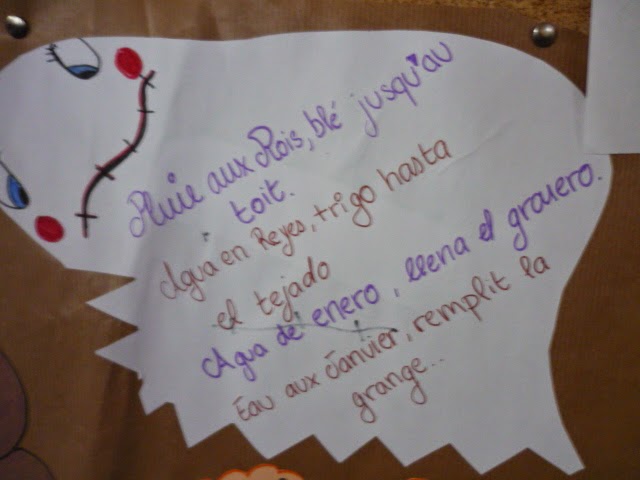 Pluie aux Rois, blé jusqu'au
toit.
Agua en Reyes, trigo hasta
el tejado
Agua de enero, llena el granero.
Eau aux Janvier, remplit la
grange...